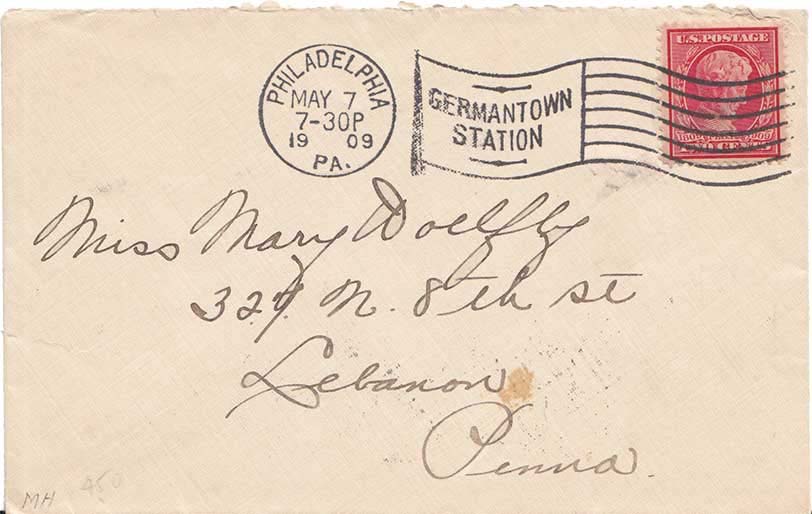 PHILADELPHIA
MAY 7
7-30P
19 09
PA.
GERMANTOWN
STATION
U.S. POSTAGE
1809 1909
Miss Mary
N. 8th st
Lebanon
Penna.
MH 450